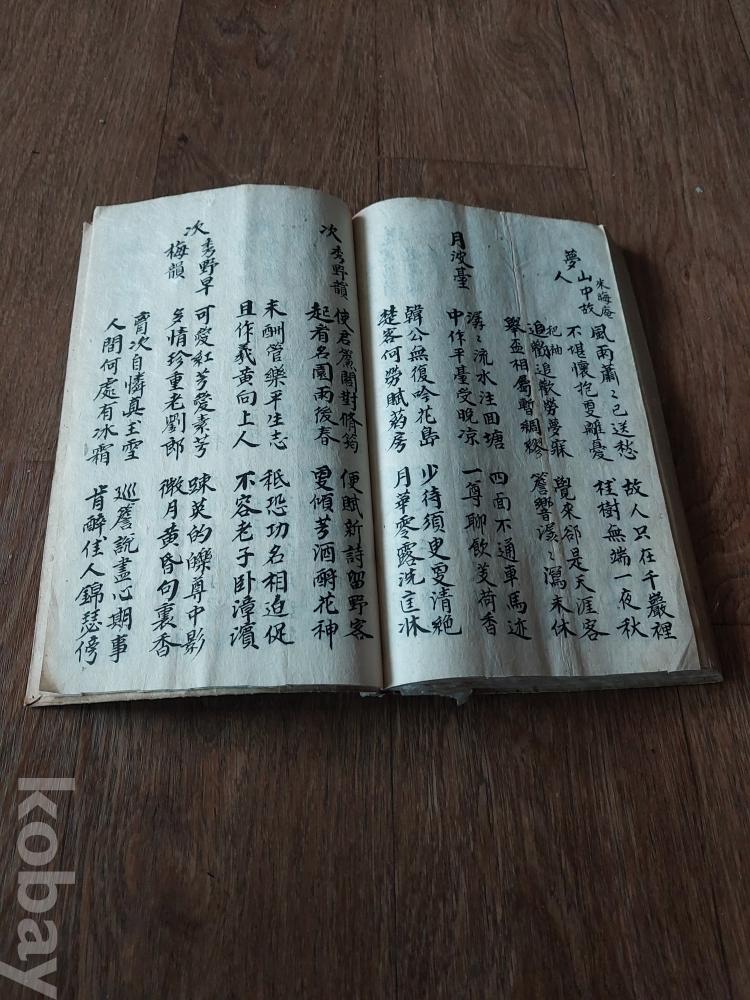 朱晦庵
夢山中故人
風雨蕭〻已送愁 故人只在千巖裡
不堪懷抱更離憂 桂樹無端一夜秋
把袖追歡追歡勞夢寐 覺來卻是天涯客
擧盃相屬暫綢繆 簷響潺〻瀉未休
月波臺
潺〻流水注回塘 四面不通車馬迹
中作平臺受晩凉 一尊聊飮芰荷香
韓公無復吟花島 少待須臾更清絶
楚客何勞賦葯房 月華零露洗匡牀
次秀野韻
使君簾閣對脩筠 便賦新詩留野客
起看名園雨後春 更傾芳酒酹花神
未酬管樂平生志 秪恐功名相迫促
且作羲黃向上人 不容老子卧漳濱
次秀野早梅韻
可愛紅芳愛素芳 踈英的皪尊中影
多情珍重老劉郎 微月黃昏句裏香
賣次自憐真玉雪 巡簷說盡心期事
人間何處有冰霜 肯醉佳人錦瑟傍
kobay